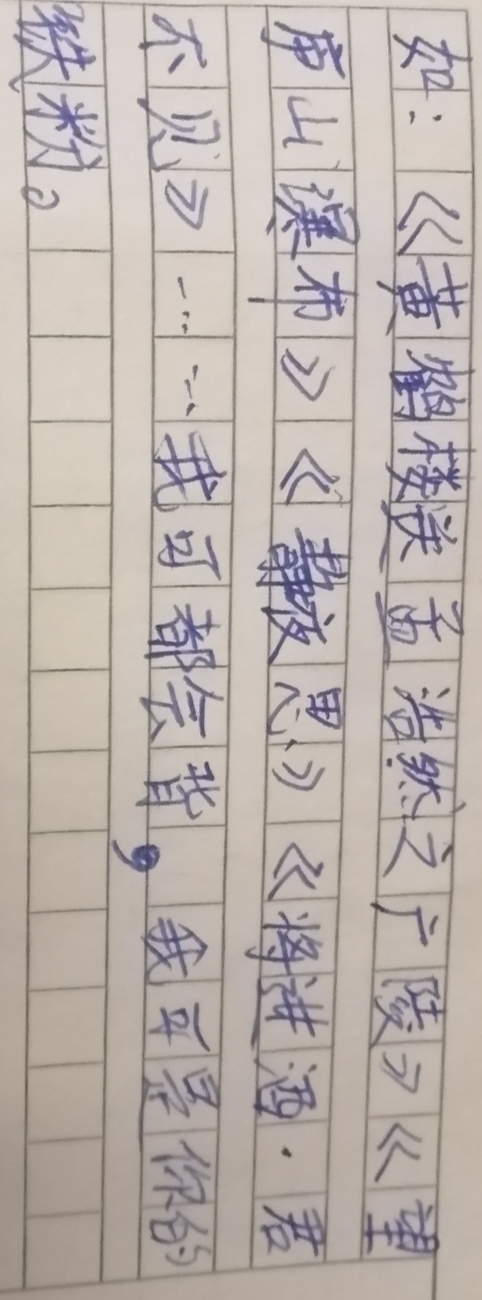 如：《黄鹤楼送孟浩然之广陵》《望
庐山瀑布》《静夜思》《将进酒·君
不见》……我可都会背，我可是你的
铁粉。